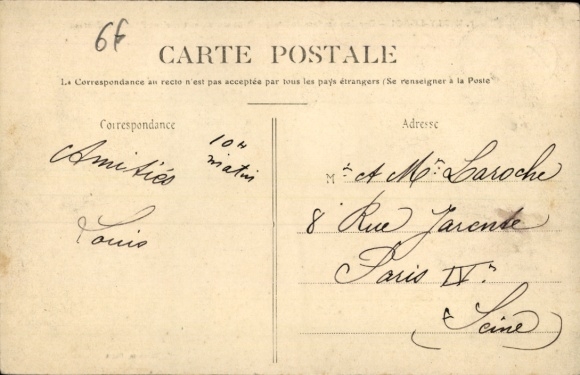 6f
CARTE POSTALE
La Correspondance au recto n'est pas acceptée par tous les pays étrangers (Se renseigner à la Poste
Correspondance
10H
matin
Amitiés
Louis
Adresse
M et Mme Laroche
8 Rue Jarente
Paris IVe
(Seine)